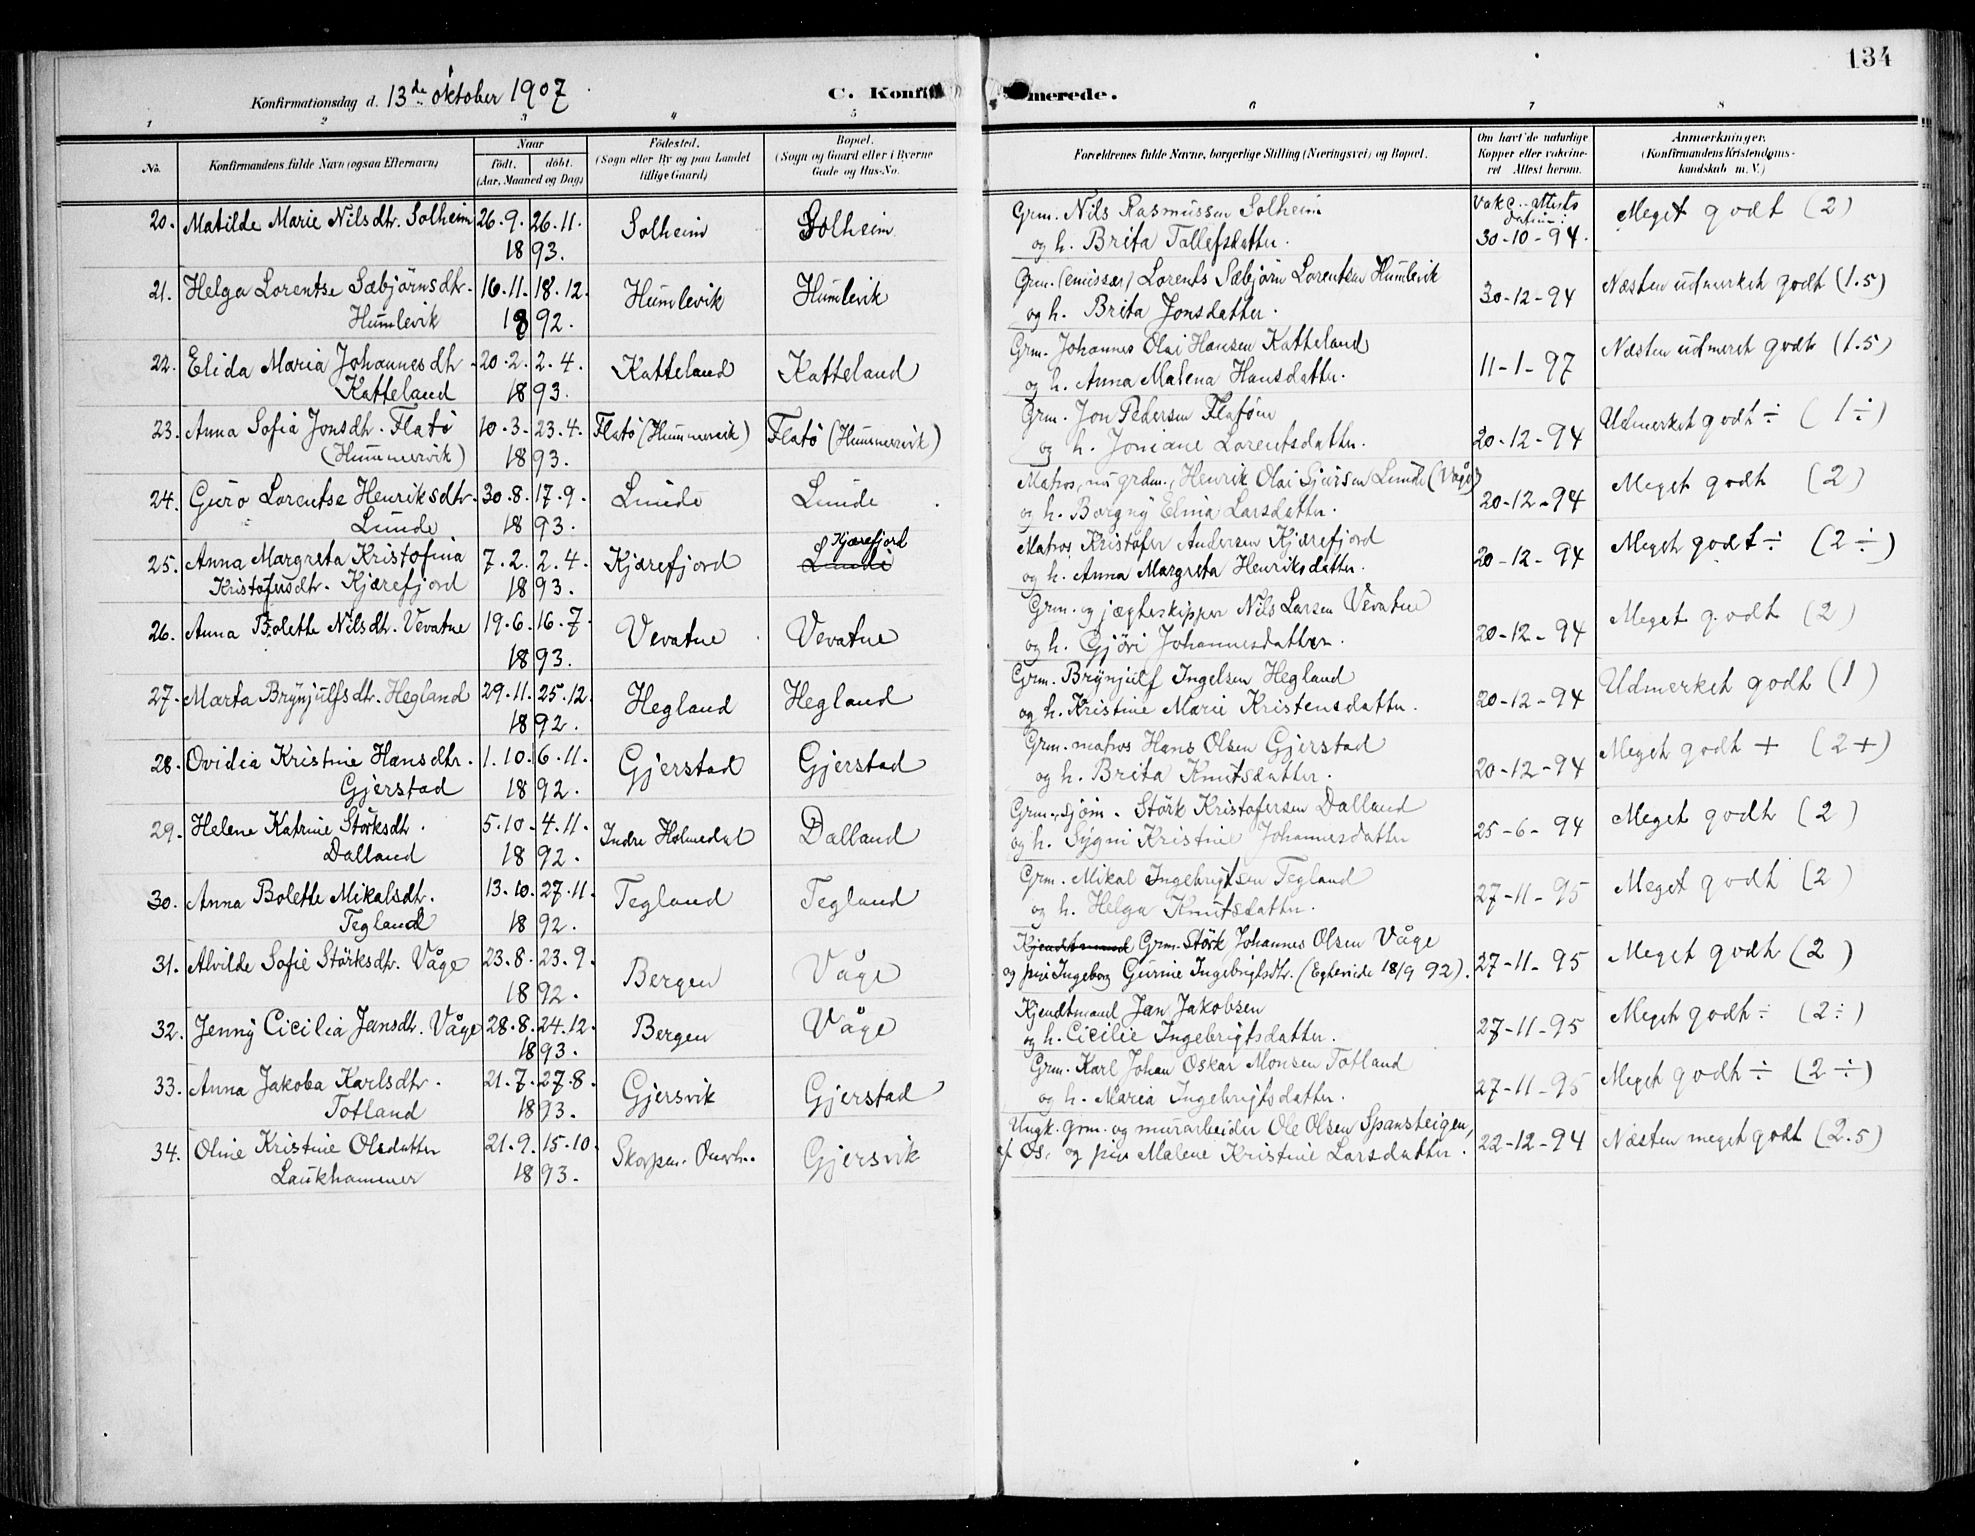 134
Konfirmationsdag d. 13de oktober 1907
C. Konfi
merede.
1 2 3 4 5 6 7 8
No.
Konfirmandens fulde Navn (ogsaa Efternavn)
Naar
födt. döbt.
(Aar, Maaned og Dag)
Födested.
(Sogn eller By og paa Landet
tillige Gaard)
Bopæl.
(Sogn og Gaard eller i Byerne
Gade og Hus-No.
Forældrenes fulde Navne, borgerlige Stilling (Næringsvei) og Bopæl.
Om havt de naturlige
Kopper eller vakcine-
ret Attest herom.
Anmærkninger.
(Konfirmandens Kristendoms-
kundskab m. V.)
20. Matilde Marie Nilsdtr. Solheim 26.9. 26.11. Solheim Solheim Grm. Nils Rasmussen Solheim vakc. attests
datum:
1893. og h. Brita Tollefsdatter. 30-10-94. Meget godt (2)
21. Helga Lorentse Sæbjörnsdtr. 16.11. 18.12. Humlevik Humlevik Grm. (emissær) Lorents Sæbjørn Lorentsen Humlevik 30-12-94 Næsten udmerket godt (1.5)
Humlevik 1892. og h. Brita Jonsdatter.
22. Elida Maria Johannesdtr. 20.2. 2.4. Katteland Katteland Grm. Johannes Olai Hansen Katteland 11-1-97 Næsten udmeret godt (1.5)
Katteland 1893. og h. Anna Malena Hansdatter.
23. Anna Sofia Jonsdtr. Flatö 10.3. 23.4. Flatö (Hummervik) Flatö (Hummervik) Grm. Jon Pedersen Flatöen 20-12-94 Udmerket godt ÷ (1÷)
(Hummervik) 1893. og h. Jomane Lorentsdatter.
24. Guro Lorentse Henriksdtr. 30.8. 17.9. Lunde Lunde Matros, nu grdm., Henrik Olai Sjursen Lunde (Våge) 20-12-94 Meget godt (2)
Lunde 1893. og h. Borgny Elina Larsdatter.
25. Anna Margreta Kristofina 7.2. 2.4. Kjærefjord Kjærefjord Lunde Matros Kristofer Andersen Kjærefjord 20-12-94 Meget godt ÷ (2÷)
Kristofersdtr. Kjærefjord 1893. og h. Anna Margreta Henriksdatter.
26. Anna Bolette Nilsdtr. Vevatne 19.6. 16.7. Vevatne Vevatne Grm. og jægteskipper Nils Larsen Vevatne 20-12-94 Meget godt (2)
1893. og h. Gjöri Johannesdatter.
27. Marta Brynjulfsdtr. Hegland 29.11. 25.12. Hegland Hegland Grm. Brynjulf Ingelsen Hegland 20-12-94 Udmerket godt (1)
1892. og h. Kristine Marie Kristensdatter.
28. Ovidia Kristine Hansdtr. 1.10. 6.11. Gjerstad Gjerstad Grm. matros Hans Olsen Gjerstad 20-12-94 Meget godt + (2+)
Gjerstad 1892. og h. Brita Knutsdatter.
29. Helene Katrine Störksdtr. 5.10. 4.11. Indre Holmedal Dalland Grm., sjöm. Störk Kristofersen Dalland 25-6-94 Meget godt (2)
Dalland 1892. og h. Sygni Kristine Johannesdatter
30. Anna Bolette Mikalsdtr. 13.10. 27.11. Tegland Tegland Grm. Mikal Ingebrigtsen Tegland 27-11-95 Meget godt (2)
Tegland 1892. og h. Helga Knutsdatter.
31. Alvilde Sofie Störksdtr. Våge 23.8. 23.9. Bergen Våge Kjendtmand Grm. Störk Johannes Olsen Våge 27-11-95 Meget godt (2)
1892. og pige Ingeborg Gurine Ingebrigtsdtr. (Egteviede 18/9 92).
32. Jenny Cicilia Jansdtr. Våge 28.8. 24.12. Bergen Våge Kjendtmand Jan Jakobsen 27-11-95 Meget godt ÷ (2÷)
1893. og h. Cicilie Ingebrigtsdatter.
33. Anna Jakoba Karlsdtr. 21.7. 27.8. Gjersvik Gjerstad Grm. Karl Johan Oskar Monsen Totland 27-11-95 Meget godt ÷ (2÷)
Totland 1893. og h. Maria Ingebrigtsdatter.
34. Oline Kristine Olsdatter 21.9. 15.10. Skorpen. Gjersvik Ungk. grm. og murarbeider Ole Olsen Spansteigen, 22-12-94 Næsten meget godt (2.5)
Laukhammer 1893. af Os, og pige Malene Kristine Larsdatter.